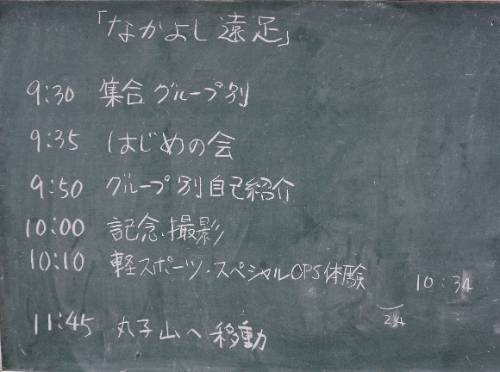 「なかよし遠足」
9:30 集合 グループ別
9:35 はじめの会
9:50 グループ別自己紹介
10:00 記念撮影
10:10 軽スポーツ・スペシャルOPS体験
10:34
11:45 丸子山へ移動